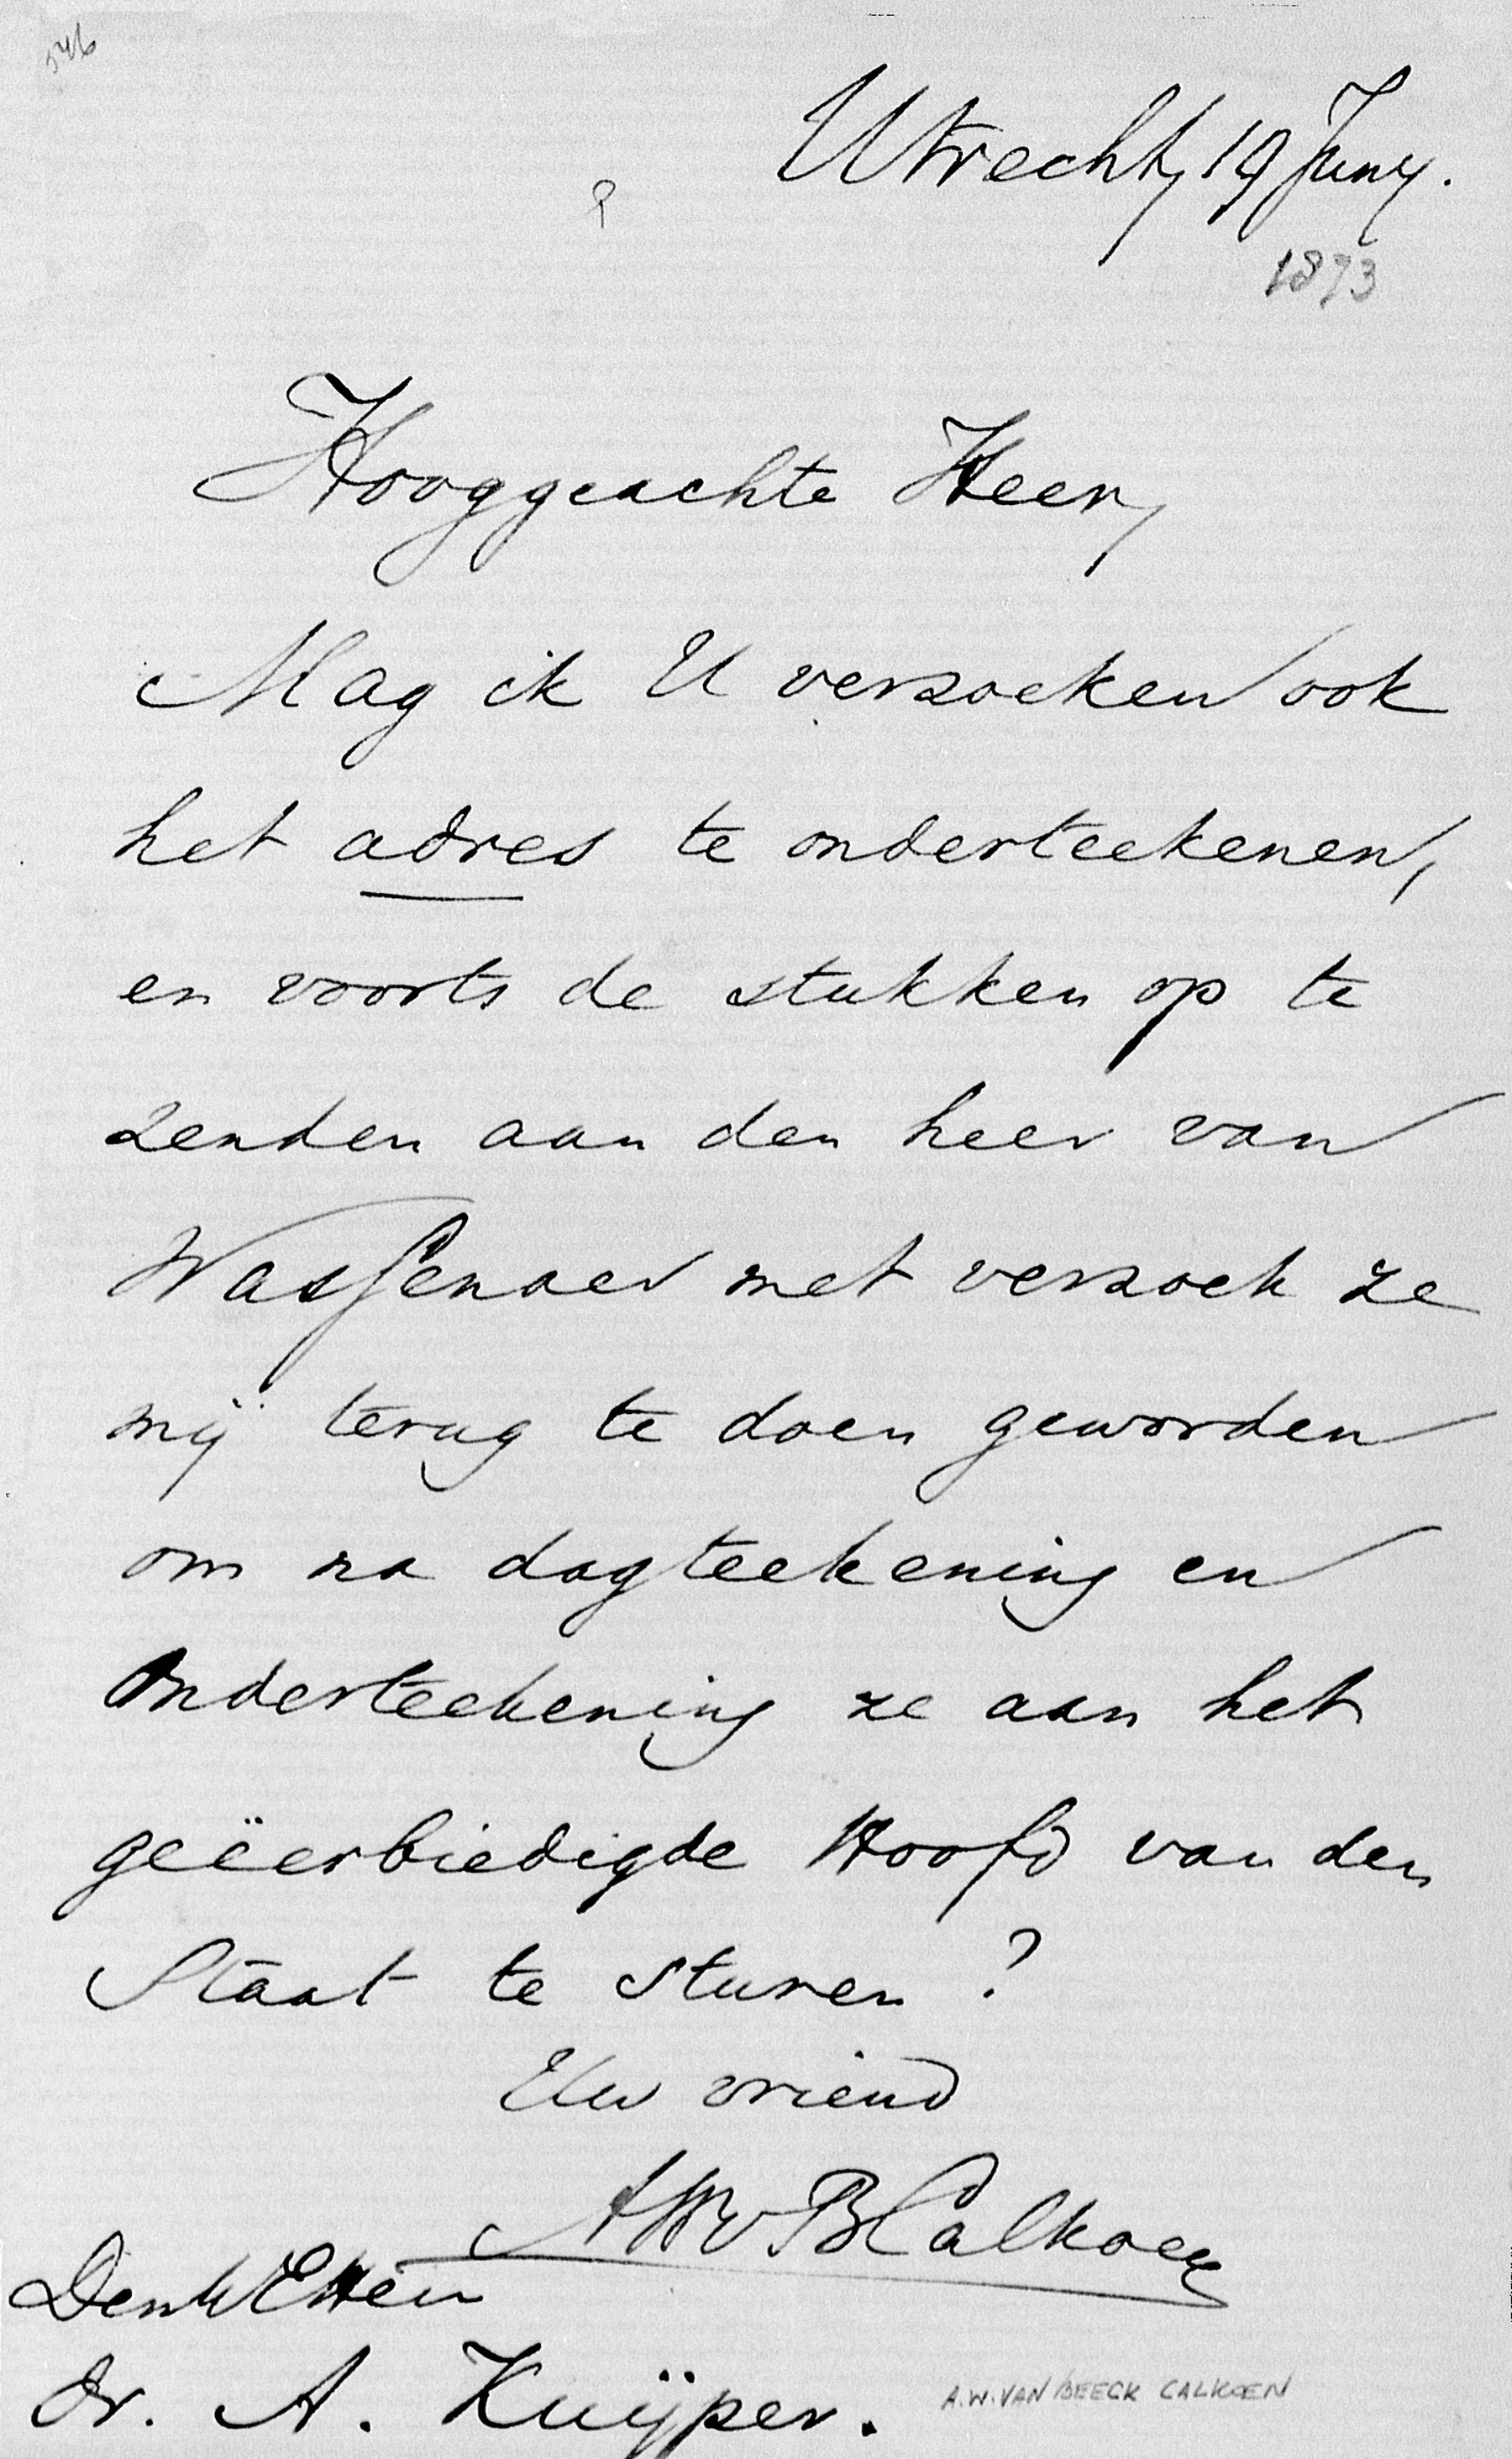 546
Utrecht, 19 Juny.
1873
Hooggeachte Heer,
Mag ik U verzoeken ook
het adres te onderteekenen,
en voorts de stukken op te
zenden aan den heer van
Wassenaer met verzoek ze
mij terug te doen geworden
om na dagteekening en
onderteekening ze aan het
geëerbiedigde Hoofd van den
Staat te sturen?
Uw vriend
AWvBCalkoen
Den WEHeer
Dr. A. Kuijper.
A.W. VAN BEECK CALKOEN